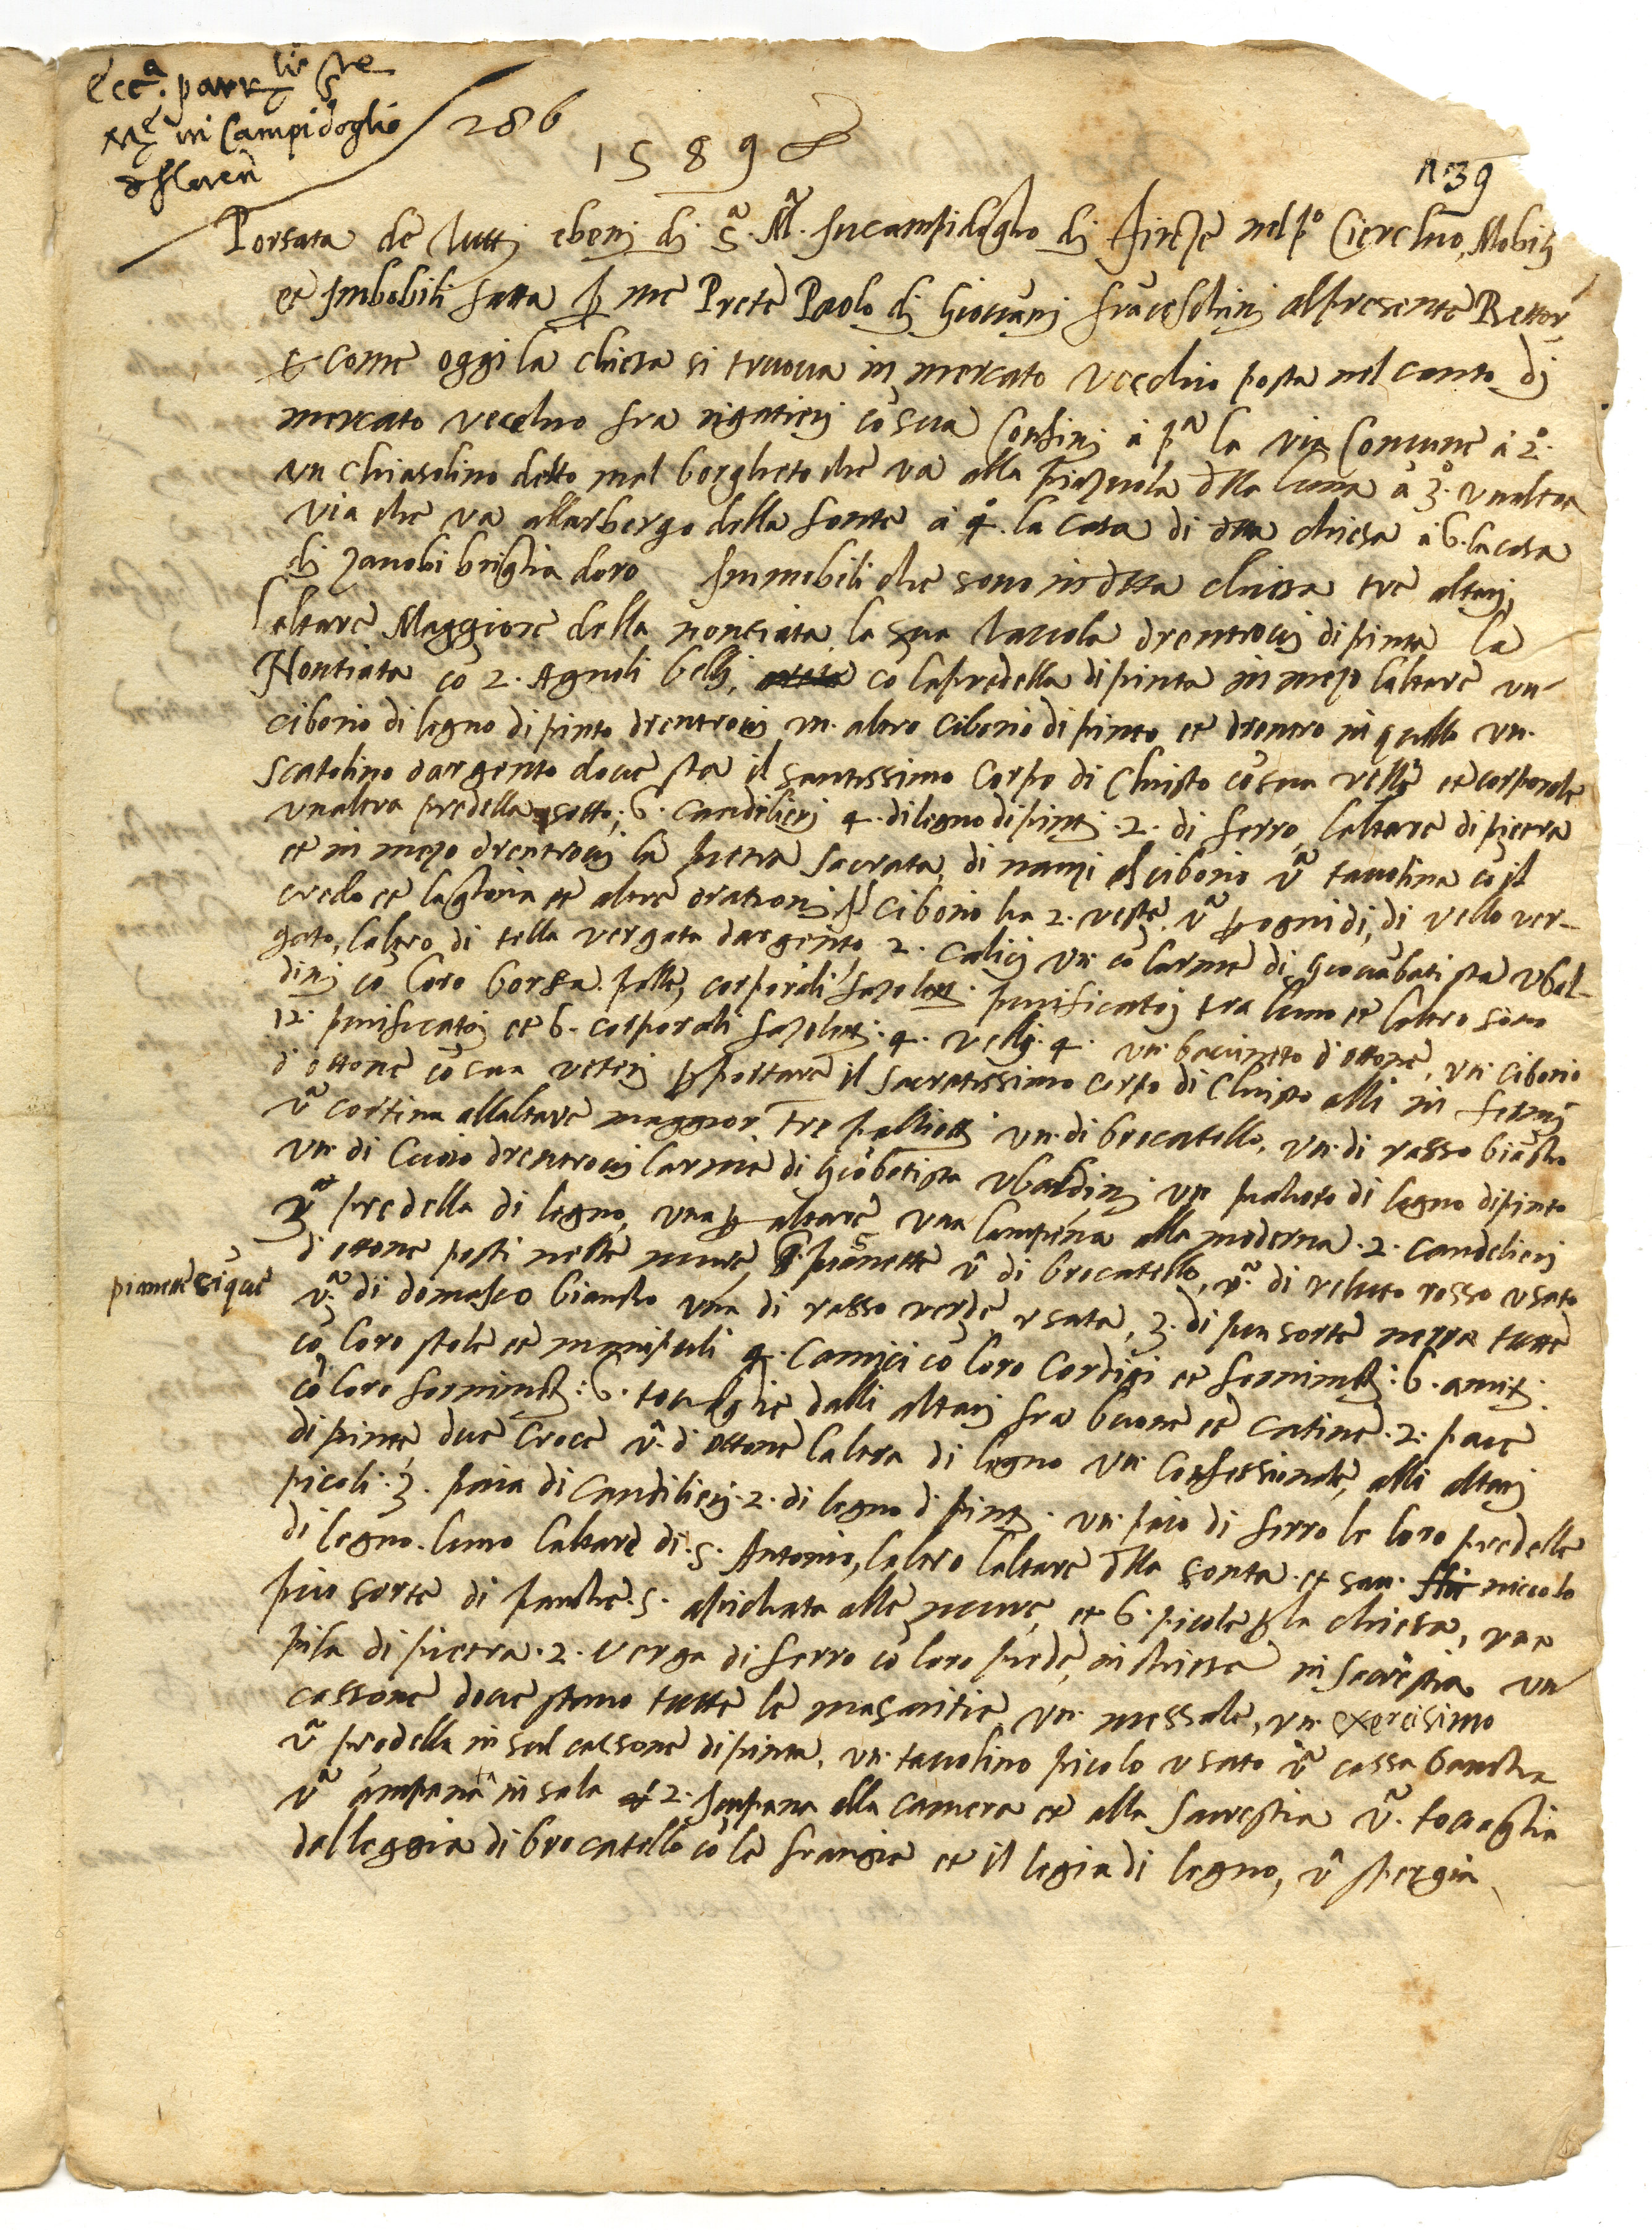 Ecc.a parr.lis S.te
M.e in Campidoglio
de floren
286
1589
n.º 39
Portata de tutti ebeni di S.a M.a Incampidoglio di firēze nel p.º Cierchio, Mobili
et Imbobili fatta p me Prete Paolo di Giovañi frāceschini alpresente Rettor
E come oggi la chiesa si truova in mercato vecchio posta nel canto di
mercato vecchio fra rigatieri cō sua Confini à p.a la via Comune à 2.º
un Chiasolino detto mal borgheto che va alla piazuola dlla luna à 3.º unaltra
via che va allarbergo della fonte à 4.º la casa di dtta chiesa à 6. la casa
di zanobi briglia doro Immobili che sono in dtta chiesa tre altari
laltare Maggiore della nontiata la sua tavola drentrovi dipinta la
Nontiata cō 2. Agnoli belli, cō lapredella dipinta in mezo laltare un
ciborio di legno dipinto drentrovi un altro ciborio dipinto et drentro in quello un
scatolino dargento dove sta il santissimo Corpo di Christo cō sua velle et corporale
unaltra predella sotto; 6. candelieri 4. dilegno dipinti .2. di ferro, laltare di pietra
et in mezo drentrovi la pietra sacrata, di nanzi el ciborio ūa tavolina cō il
credo et lagloria et altre orationi Il Ciborio ha 2. veste. ūa p ogni di, di vello ver-
gato, laltro di tella vergata dargento 2. Calici un cō larme di Giovābatista Ubal-
dini cō loro borsa. palle, corporali fazoletti. purificatoi tra luno et laltro sono
12. purificatoi et 6. corporali fazoletti .4. velli .4. un bacineto d'ottone, un ciborio
d'ottone cō sua vetri p portare il sacratissimo corpo di Christo alli in fermi
ūa cortina allaltare maggior tre palliotti un di brocatello, un di rasso biācho
un di Cuoio drentrovi larme di Giōbatista Ubaldini un palioto di legno dipinto
predella di legno, una p altare una lampena alla moderna .2. candelieri
d'ottone posti nelle mure 5 pianette ūa di brocatello, ūa di veluto rosso usato
pianette cīque
ūa di domasco biancho una di rasso verde usata, 3. di piu sorte nerra tutte
cō loro stole et manipuli 4. Camici cō loro Cordigi et fornimēti: 6. amiti
cō loro fornimēti: 6. tovaglie dalli altari fra buone et catine .2. pace
dipinte, due Croce ūa d'ottone laltra di legno un Confessionale, alli altari
picoli .3. paia di Candilieri .2. di legno dipinti. un paio di ferro le loro predelle
di legno. luno laltare di .S. Antonio, laltro laltare dlla sonta. et san. niccolo
piu sorte di panche .5. apichata alle mure, et 6. picole p la chiesa, una
pila di pietra .2. verga di ferro cō loro piede, in chiesa in sacrestia un
cassone dove stano tutte le masaritie un messale, un exorcisimo
ūa predella in sul cassone dipinta, un tavolino picolo usato ūa cassa bancha
ūa impanata in sala 2. Inpana alla camera et alla sacrestia ūa tovaglia
dalleggia di brocatello cō le frangie et il legia di legno, ū spergia